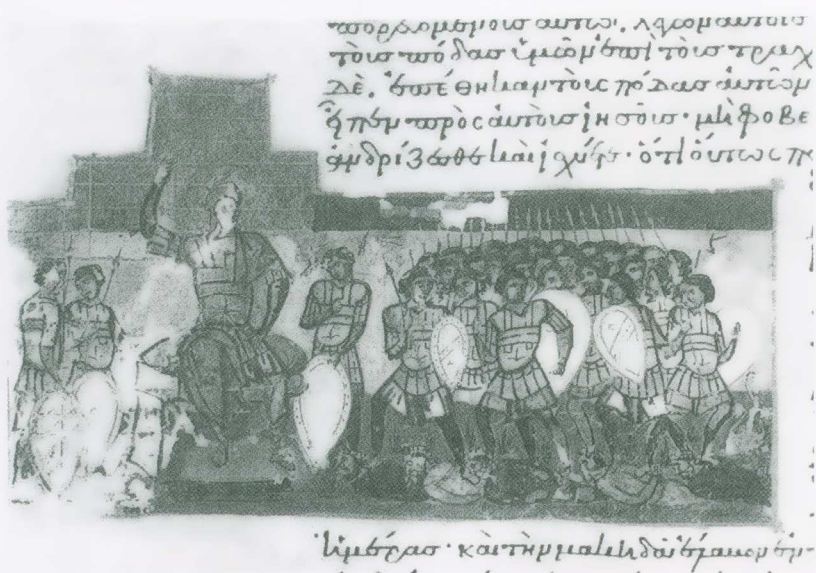 πορευομένους αὐτῶ. λέγων αὐτοῖς
τοὺς πόδας ὑμῶν ἐπὶ τοὺς τραχ
δὲ. ἐπέθηκαν τοὺς πόδας αὐτῶν
εἶπεν πρὸς αὐτοὺς ἰησοῦς· μὴ φοβε
ἀνδρίζεσθε καὶ ἰσχύετε· ὅτι οὕτως
ἡμέρας· καὶ τὴν μακηδὰ